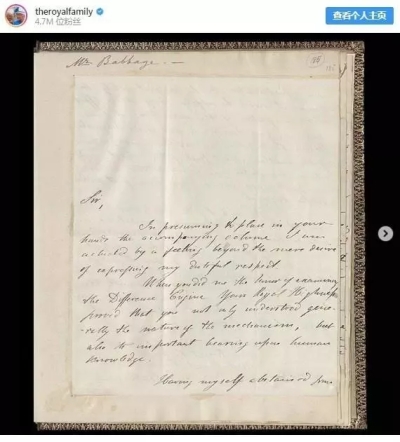 theroyalfamily
4.7M 位粉丝
查看个人主页
Mr Babbage. —
Sir,
In presuming to place in your
hands the accompanying volume I was
actuated by a feeling beyond the mere desire
of expressing my dutiful respect.
When you did me the honor of examining
the Difference Engine Your Royal Highness
proved that you not only understood gene-
rally the nature of the mechanism, but
also its important bearing upon human
knowledge.
Having myself obtained from